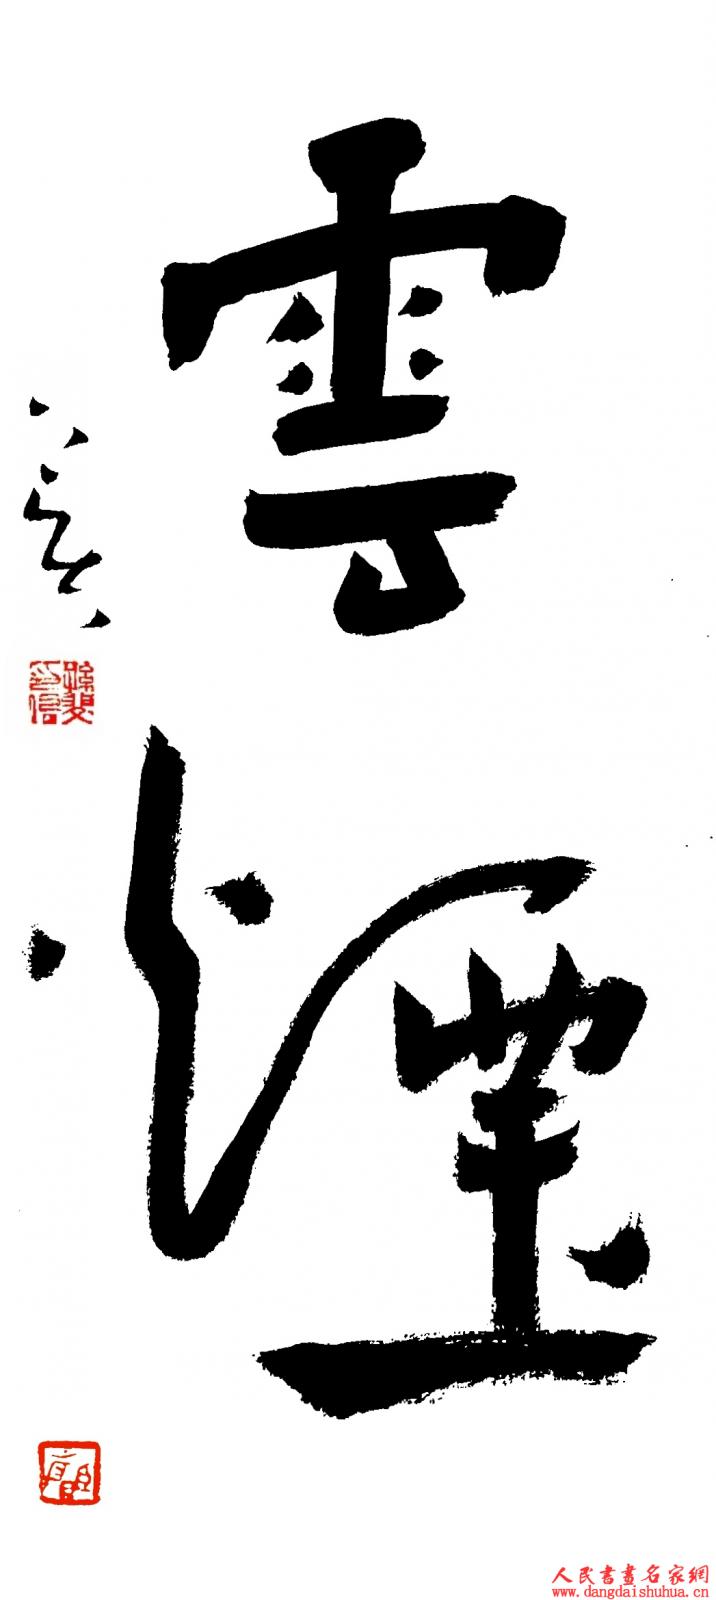 雲煙
人民書畫名家網
www.dangdaishuhua.cn